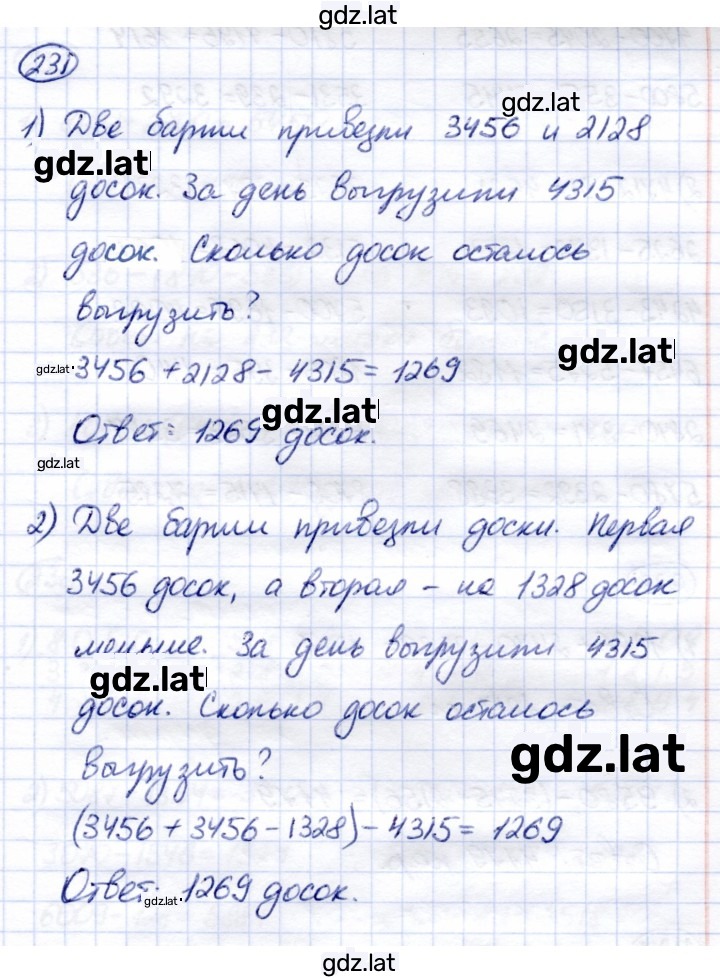 gdz.lat
231
1) Две баржи привезли 3456 и 2128
gdz.lat
gdz.lat
досок. За день выгрузили 4315
досок. Сколько досок осталось
выгрузить?
gdz.lat
gdz.lat
3456 + 2128 - 4315 = 1269
gdz.lat
Ответ: 1269 досок.
gdz.lat
2) Две баржи привезли доски. Первая
3456 досок, а вторая - на 1328 досок
меньше. За день выгрузили 4315
gdz.lat
досок. Сколько досок осталось
gdz.lat
выгрузить?
(3456 + 3456 - 1328) - 4315 = 1269
Ответ: 1269 досок.
gdz.lat
gdz.lat